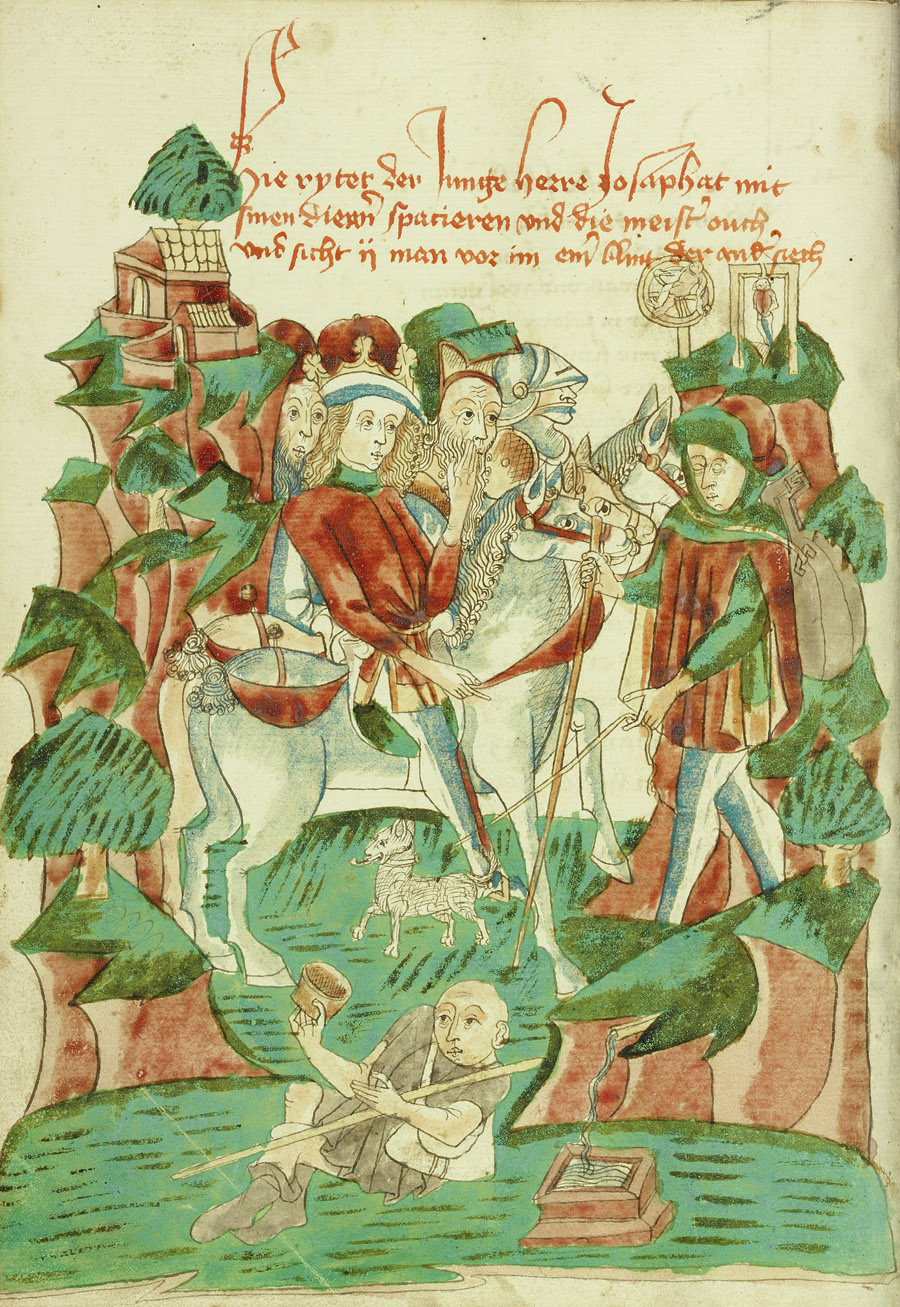 Hie rytet der Junge herre Josaphat mit
sinen diewn̄ spacieren vnd die meist' ouch
vnd sicht ij man vor im ein̄ blint der and' siech